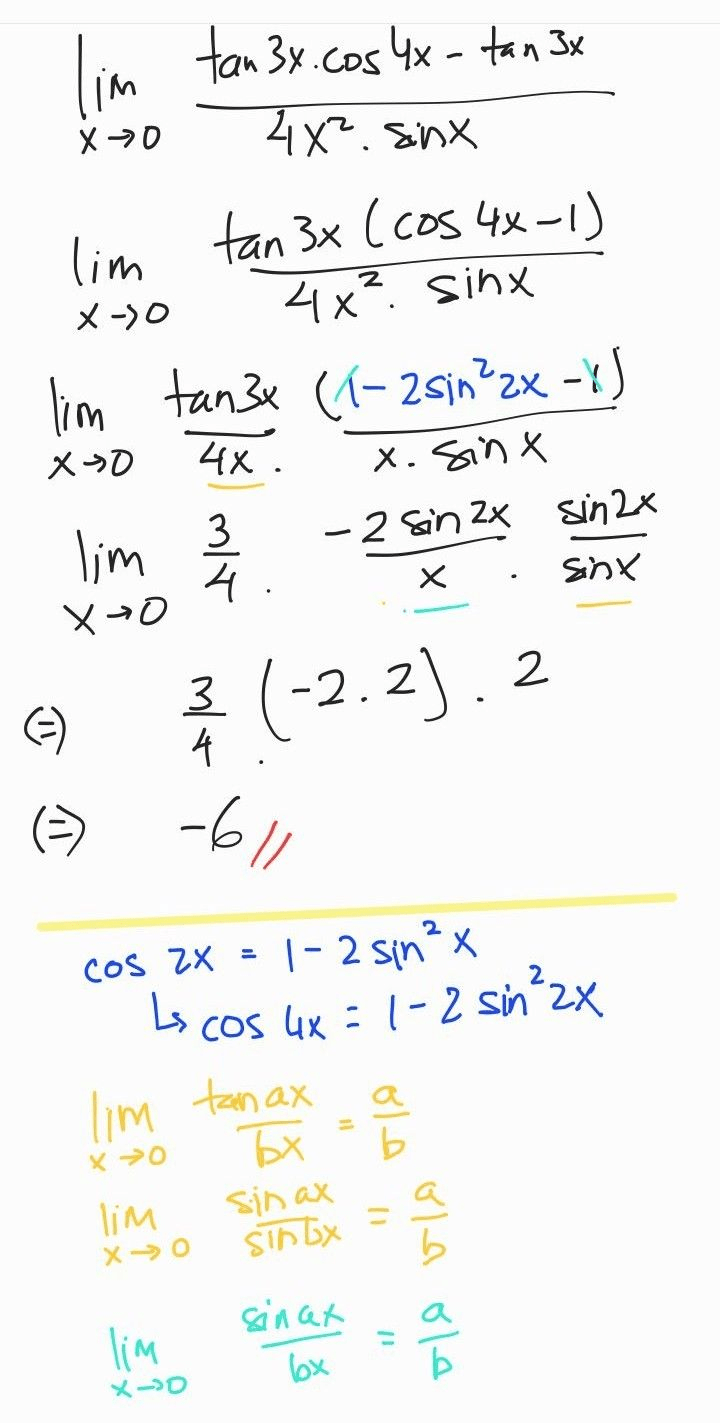 lim x→0 (tan 3x . cos 4x - tan 3x) / (4x² . sin x)
lim x→0 (tan 3x (cos 4x - 1)) / (4x² . sin x)
lim x→0 (tan 3x) / (4x) . (1 - 2 sin² 2x - 1) / (x . sin x)
lim x→0 3/4 . (-2 sin 2x) / x . (sin 2x) / (sin x)
(=) 3/4 . (-2 . 2) . 2
(=) -6 //
cos 2x = 1 - 2 sin² x
↳ cos 4x = 1 - 2 sin² 2x
lim x→0 (tan ax) / (bx) = a/b
lim x→0 (sin ax) / (sin bx) = a/b
lim x→0 (sin ax) / (bx) = a/b